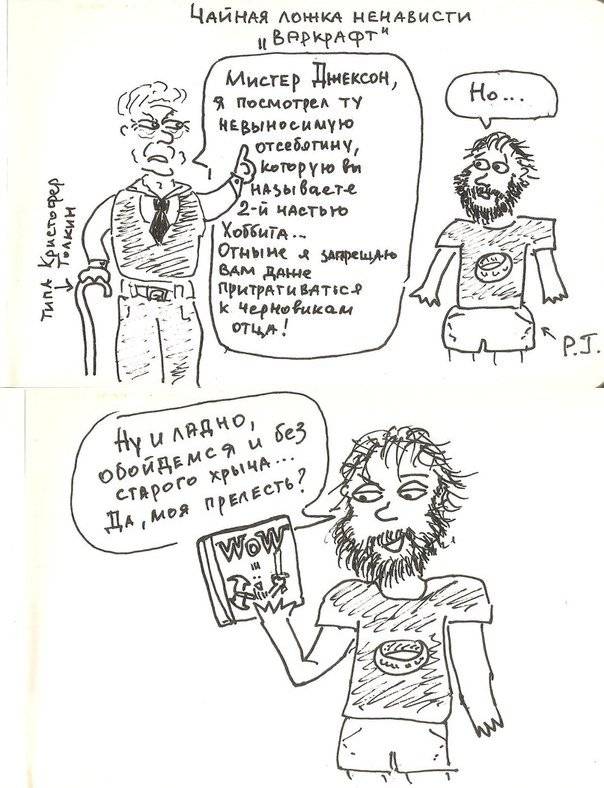 Чайная ложка ненависти
"Варкрафт"
Мистер Джексон,
я посмотрел ту
невыносимую
отсебятину,
которую вы
называете
2-й частью
Хоббита...
Отныне я запрещаю
вам даже
притрагиваться
к черновикам
отца!
Но...
типа Кристофер
Толкин
P.J.
Ну и ладно,
обойдемся и без
старого хрыча...
Да, моя прелесть?
WoW